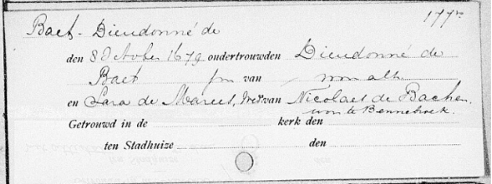 Baet - Dieudonné de 177vo
den 8 October 1679 ondertrouwden Dieudonné de
Baet jm van won alh.
en Sara de Marees, Wed. van Nicolaes de Backer
won te Bennebroek.
Getrouwd in de kerk den
ten Stadhuize den